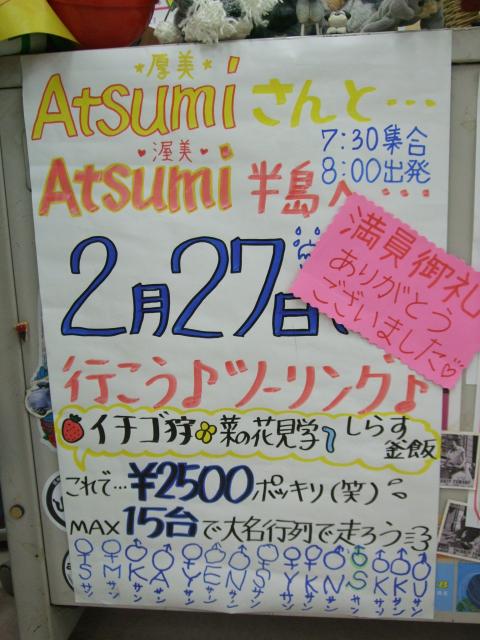 ★厚美★
Atsumiさんと…
7:30集合
8:00出発
♥渥美♥
Atsumi半島へ…
2月27日
満員御礼
ありがとう
ございました♡
行こう♪ツーリング♪
イチゴ狩 菜の花見学 しらす
釜飯
これで…¥2500ポッキリ(笑)
MAX 15台で大名行列で走ろう
♀♀♂♂♀♀♂♂♀♂♂♂♂♂♂
S M K A Y E N S Y K N S K K U
サン サン サン サン サン サン サン サン サン サン サン サン サン サン サン